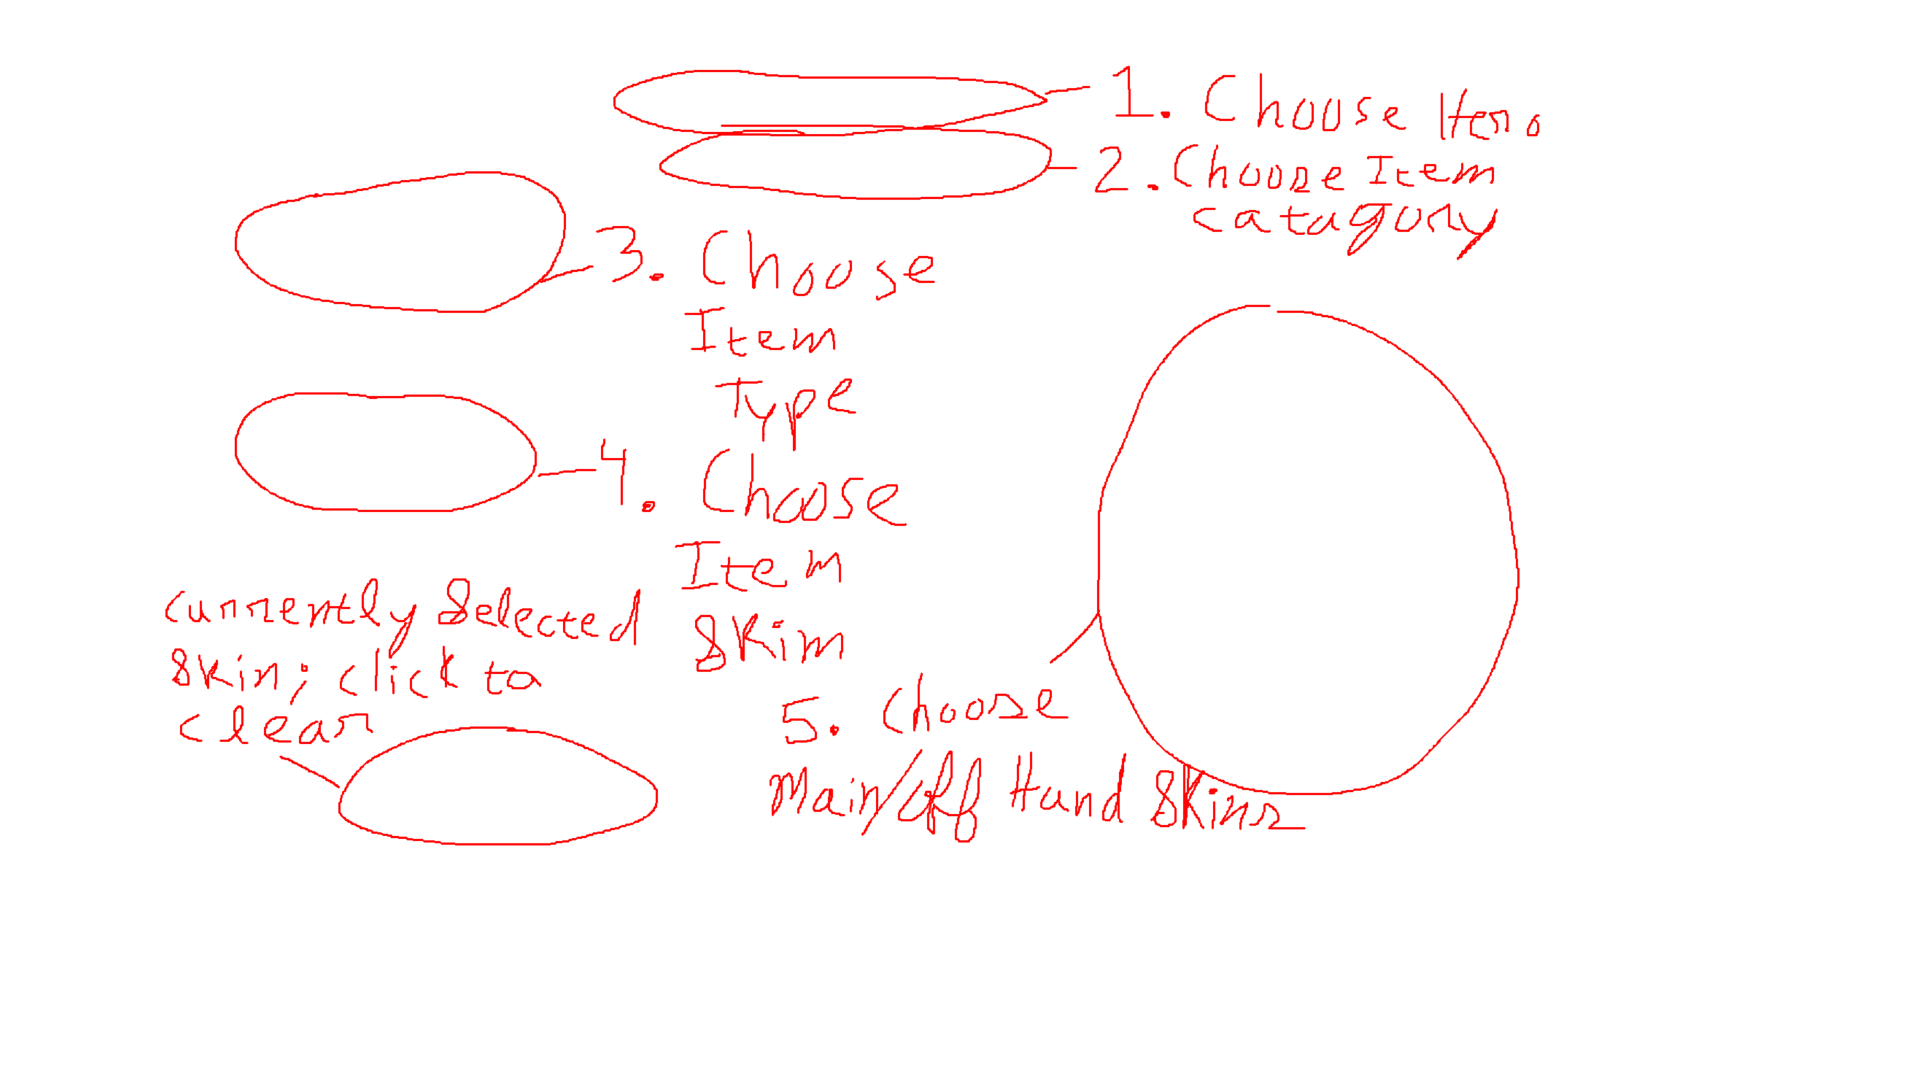 1. Choose Hero
2. Choose Item
catagory
3. Choose
Item
Type
4. Choose
Item
Skim
currently Selected
Skin; click to
clear
5. Choose
Main/Off Hand Skins